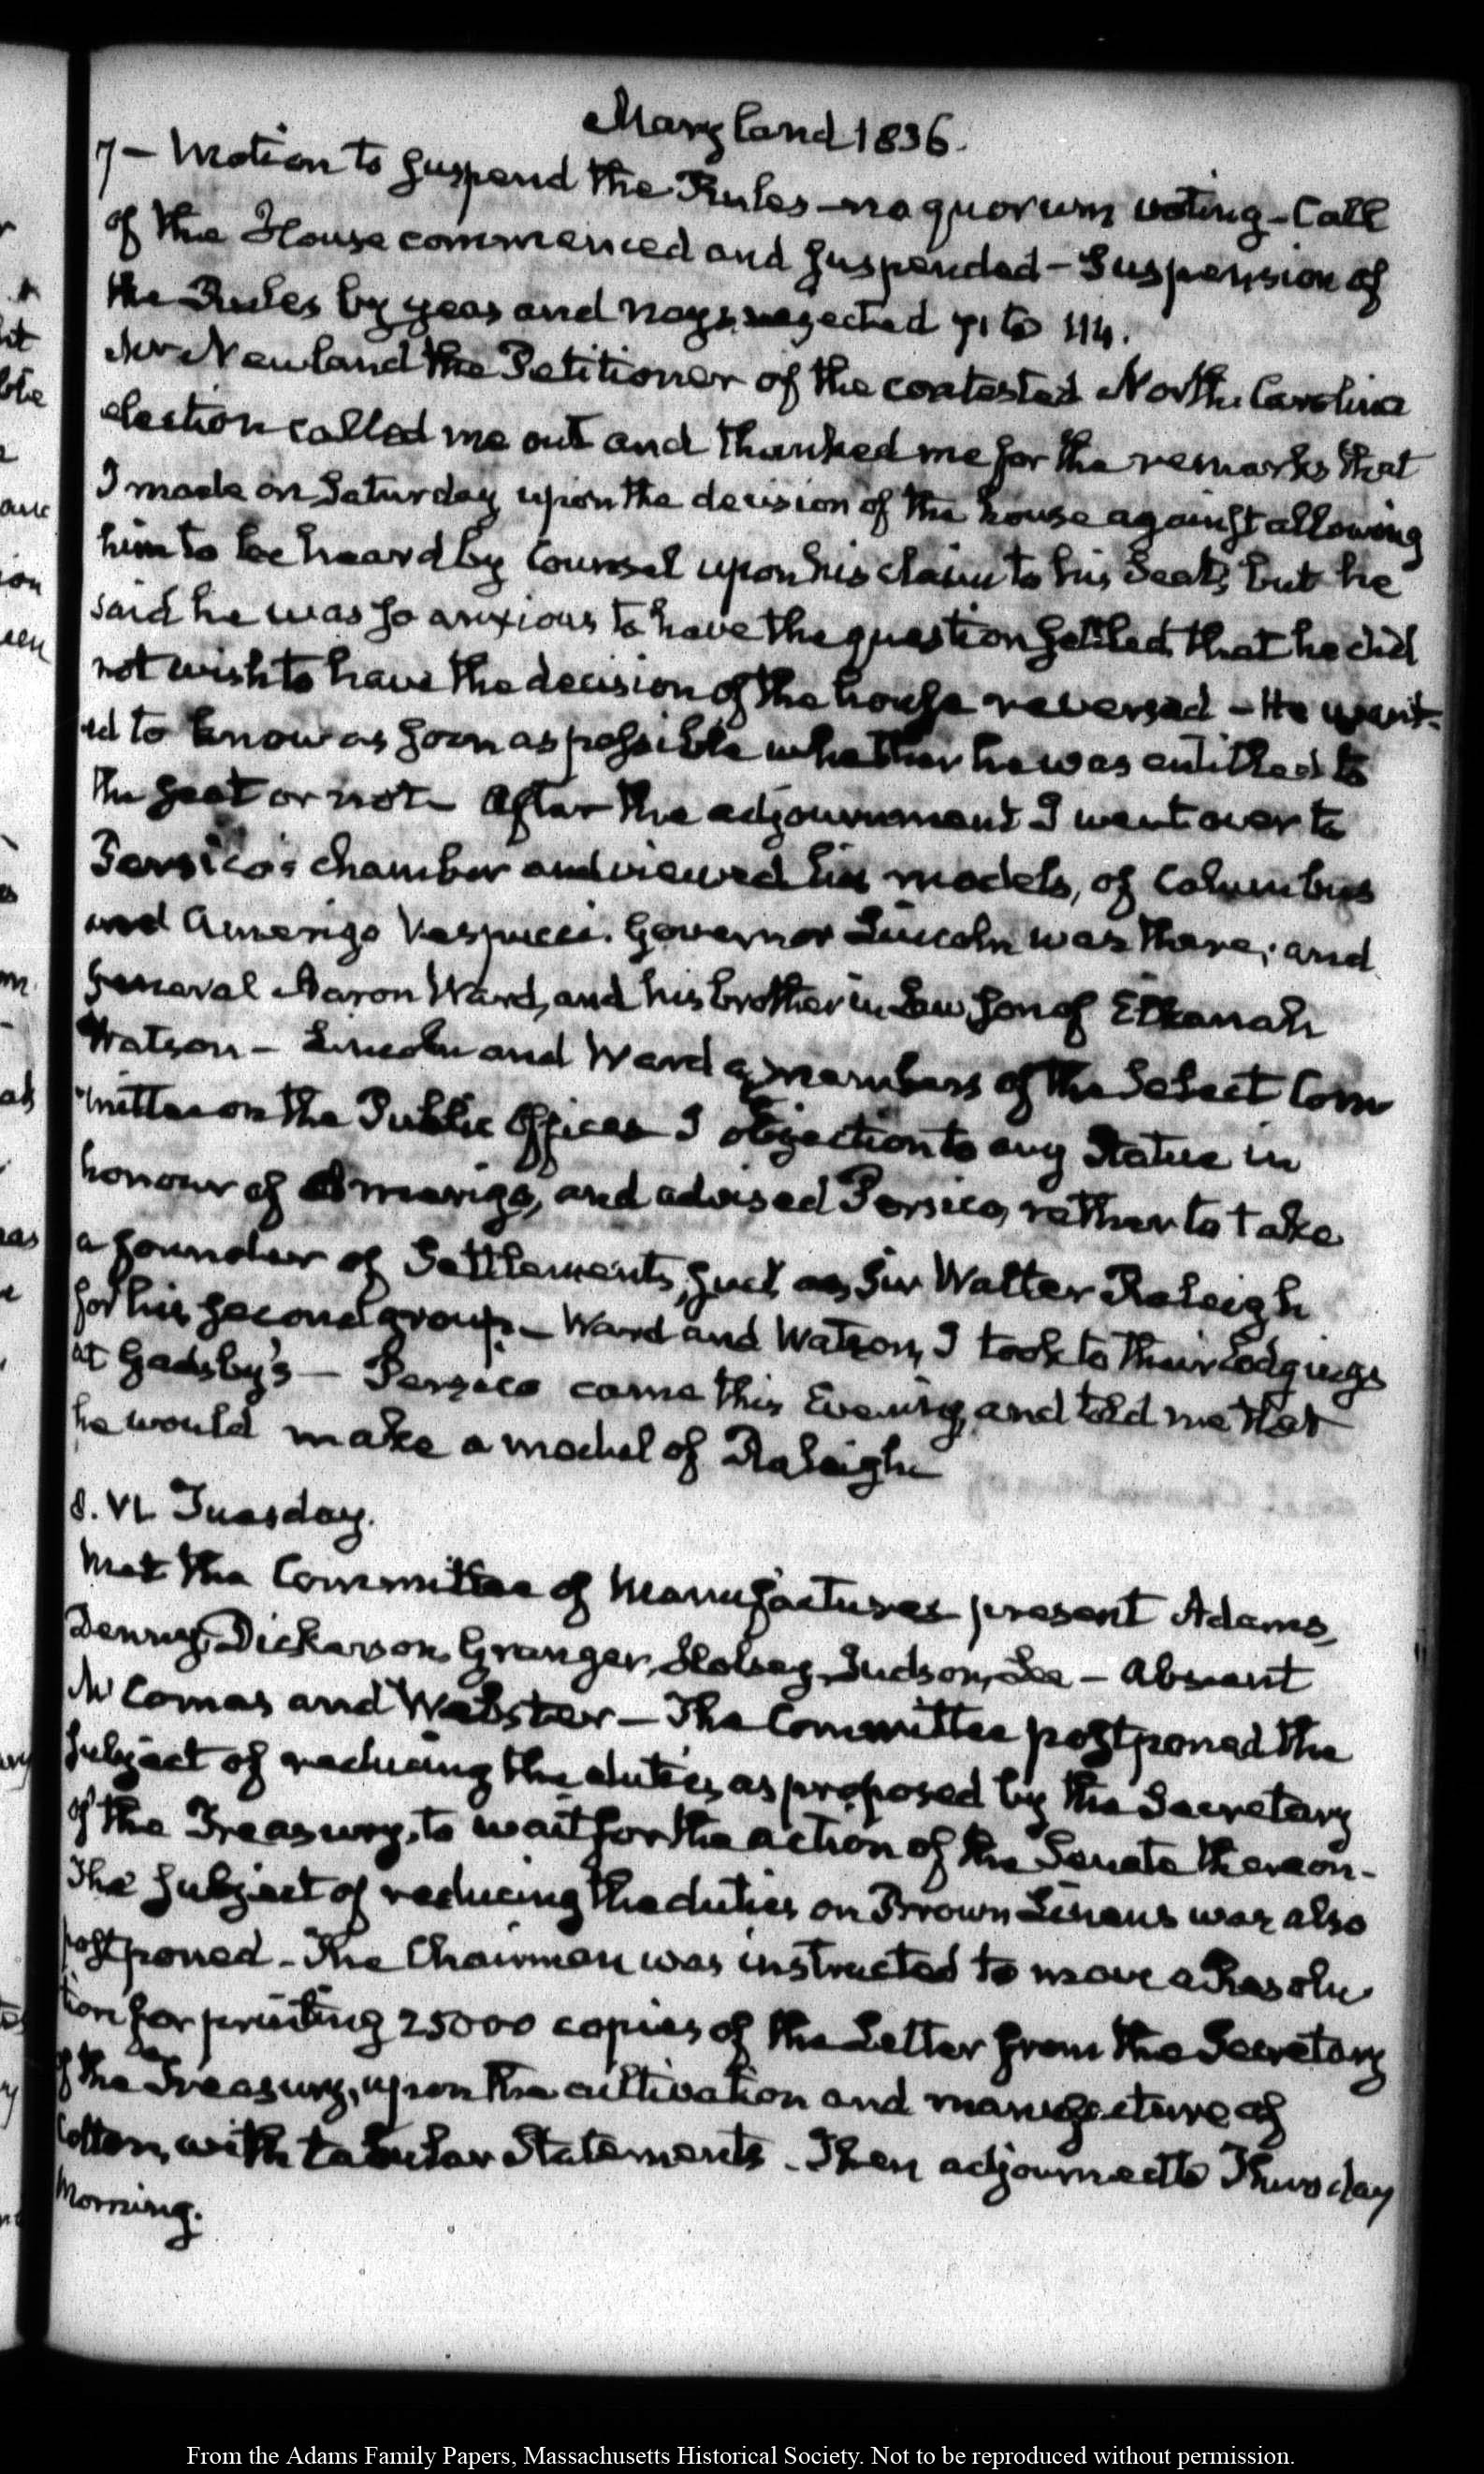 Maryland 1836.
7 – Motion to suspend the Rules – no quorum voting – Call
of the House commenced and suspended – Suspension of
the Rules by yeas and nays rejected 91 to 114.
Mr Newland the Petitioner of the contested North Carolina
election called me out and thanked me for the remarks that
I made on Saturday upon the decision of the house against allowing
him to be heard by Counsel upon his claim to his Seat, but he
said he was so anxious to have the question settled, that he did
not wish to have the decision of the house reversed – He want-
ed to know as soon as possible whether he was entitled to
the seat or not – After the adjournment I went over to
Persico's chamber and viewed his models, of Columbus
and Amerigo Vespucci. Governor Lincoln was there; and
General Aaron Ward, and his brother in Law, son of Elkanah
Watson – Lincoln and Ward members of the Select Com
mittee on the Public Offices I objection to any Statue in
honour of Amerigo, and advised Persico, rather to take
a founder of Settlements, such as Sir Walter Raleigh
for his second group – Ward and Watson, I took to their Lodgings
at Gadsby's – Persico came this Evening, and told me that
he would make a model of Raleigh
8. VI. Tuesday.
Met the Committee of Manufactures present Adams,
Denny, Dickerson, Granger, Halsey, Judson, Lee – Absent
McComas and Webster – The Committee postponed the
subject of reducing the duties, as proposed by the Secretary
of the Treasury, to wait for the action of the Senate thereon –
The subject of reducing the duties on Brown Linens was also
postponed – The Chairman was instructed to move a Resolu
tion for printing 25000 copies of the Letter from the Secretary
of the Treasury, upon the cultivation and manufacture of
Cotton, with tabular Statements – Then adjourned to Thursday
Morning.
From the Adams Family Papers, Massachusetts Historical Society. Not to be reproduced without permission.